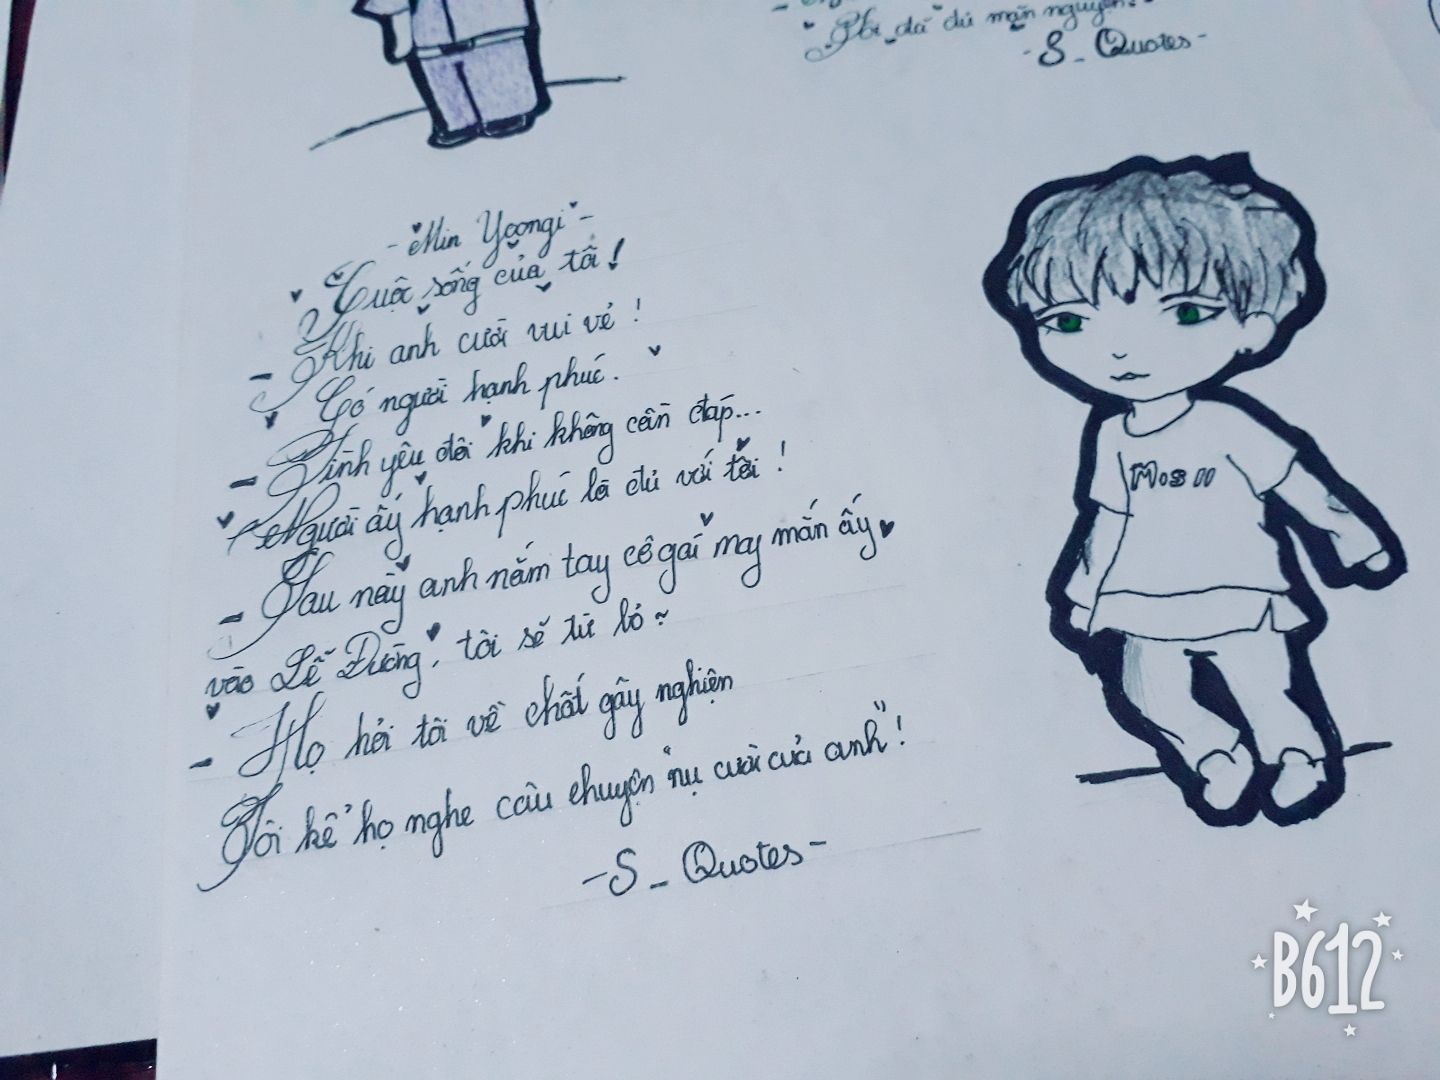 Tôi đã đủ mãn nguyện.
- S_ Quotes -
- Min Yoongi -
Cuộc sống của tôi!
- Khi anh cười vui vẻ!
Có người hạnh phúc.
- Tình yêu đôi khi không cần đáp...
Người ấy hạnh phúc là đủ với tôi!
- Sau này anh nắm tay cô gái may mắn ấy
vào Lễ Đường, tôi sẽ từ bỏ ~
- Họ hỏi tôi về chất gây nghiện
Tôi kể họ nghe câu chuyện "nụ cười của anh"!
- S_ Quotes -
B612